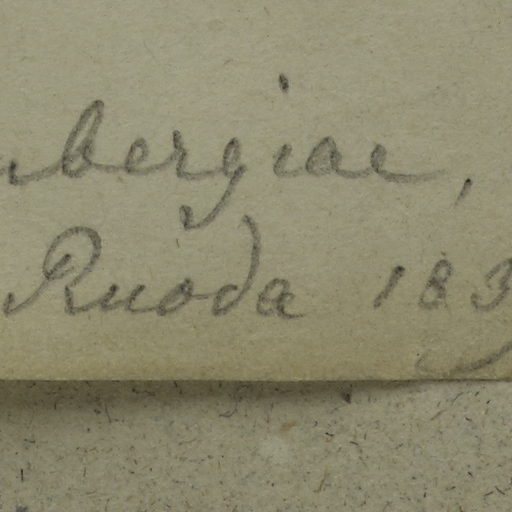 bergiae,
Ruoda 183